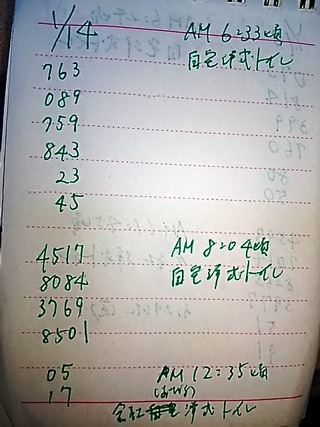 1/14 AM 6:33頃
763 自宅洋式トイレ
089
759
843
23
45
4517 AM 8:04頃
8084 自宅洋式トイレ
3769
8501
05 AM 12:35頃
17
会社 洋式トイレ